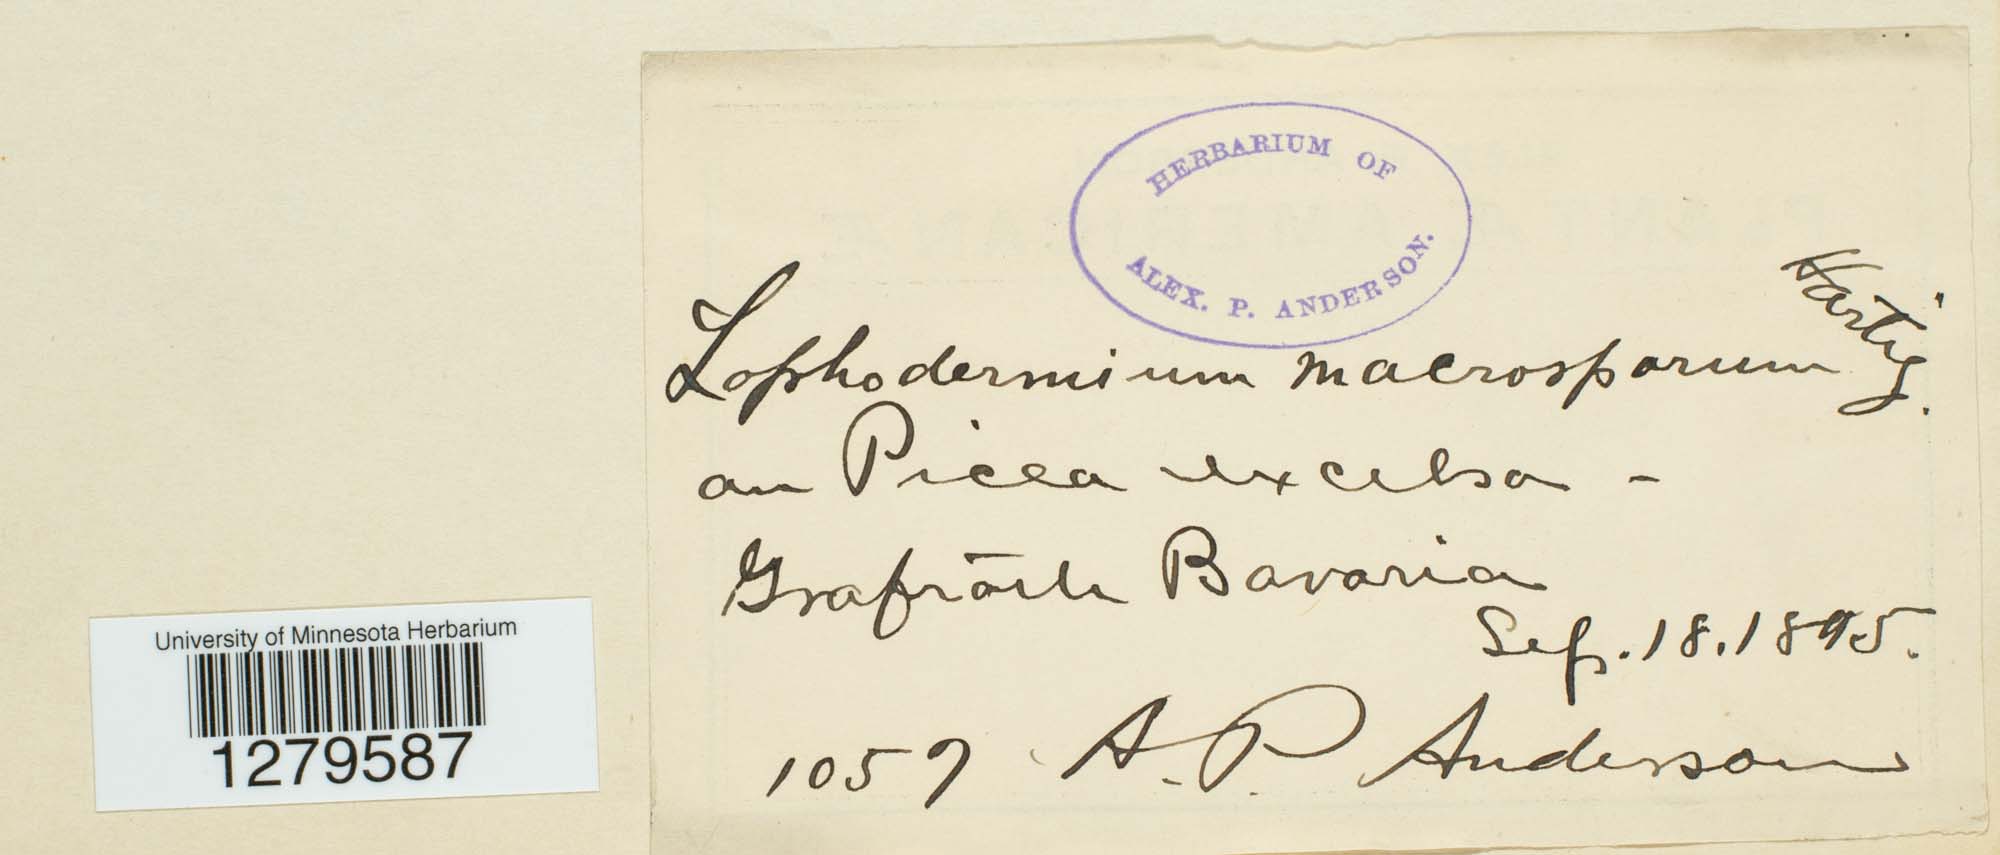 HERBARIUM OF
ALEX. P. ANDERSON.
Lophodermium macrosporum Hartig.
on Picea excelsa -
Bavaria
Sep. 18. 1895.
1059 A. P. Anderson
University of Minnesota Herbarium
1279587